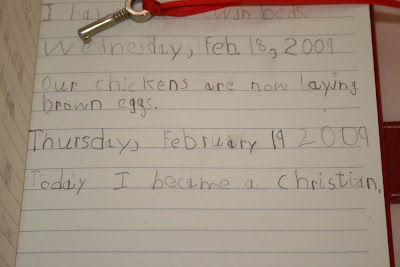 I ha twin beds.
Wednesday, Feb. 18, 2009
Our chickens are now laying
brown eggs.
Thursday, February 19 2009
Today I became a Christian.